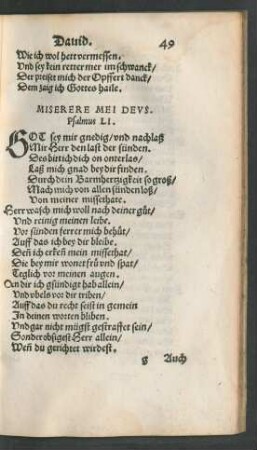 Dauid. 49
Wie ich wol hett vermessen.
Vnd sey kein retter mer im schwanck/
Der preiset mich der Opffert danck/
Dem zaig ich Gottes haile.
MISERERE MEI DEVS.
Psalmus LI.
GOT sey mir gnedig/vnd nachlaß
Mir Herr den last der sünden.
Des bitt ich dich on onterlas/
Laß mich gnad bey dir finden.
Durch dein Barmhertzigkeit so groß/
Mach mich von allen sünden loß/
Von meiner missethate.
Herr wasch mich woll nach deiner güt/
Vnd reinig meinen leibe.
Vor sünden ferrer mich behüt/
Auff das ich bey dir bleibe.
Deñ ich erkeñ mein missethat/
Die bey mir wonet frü vnd spat/
Teglich vor meinen augen.
On dir ich gsündigt hab allein/
Vnd vbels vor dir triben/
Auff das du recht seist in gemein
In deinen worten bliben.
Vnd gar nicht mügst gestraffet sein/
Sonder obsigest Herr allein/
Weñ du gerichtet wirdest.
g Auch